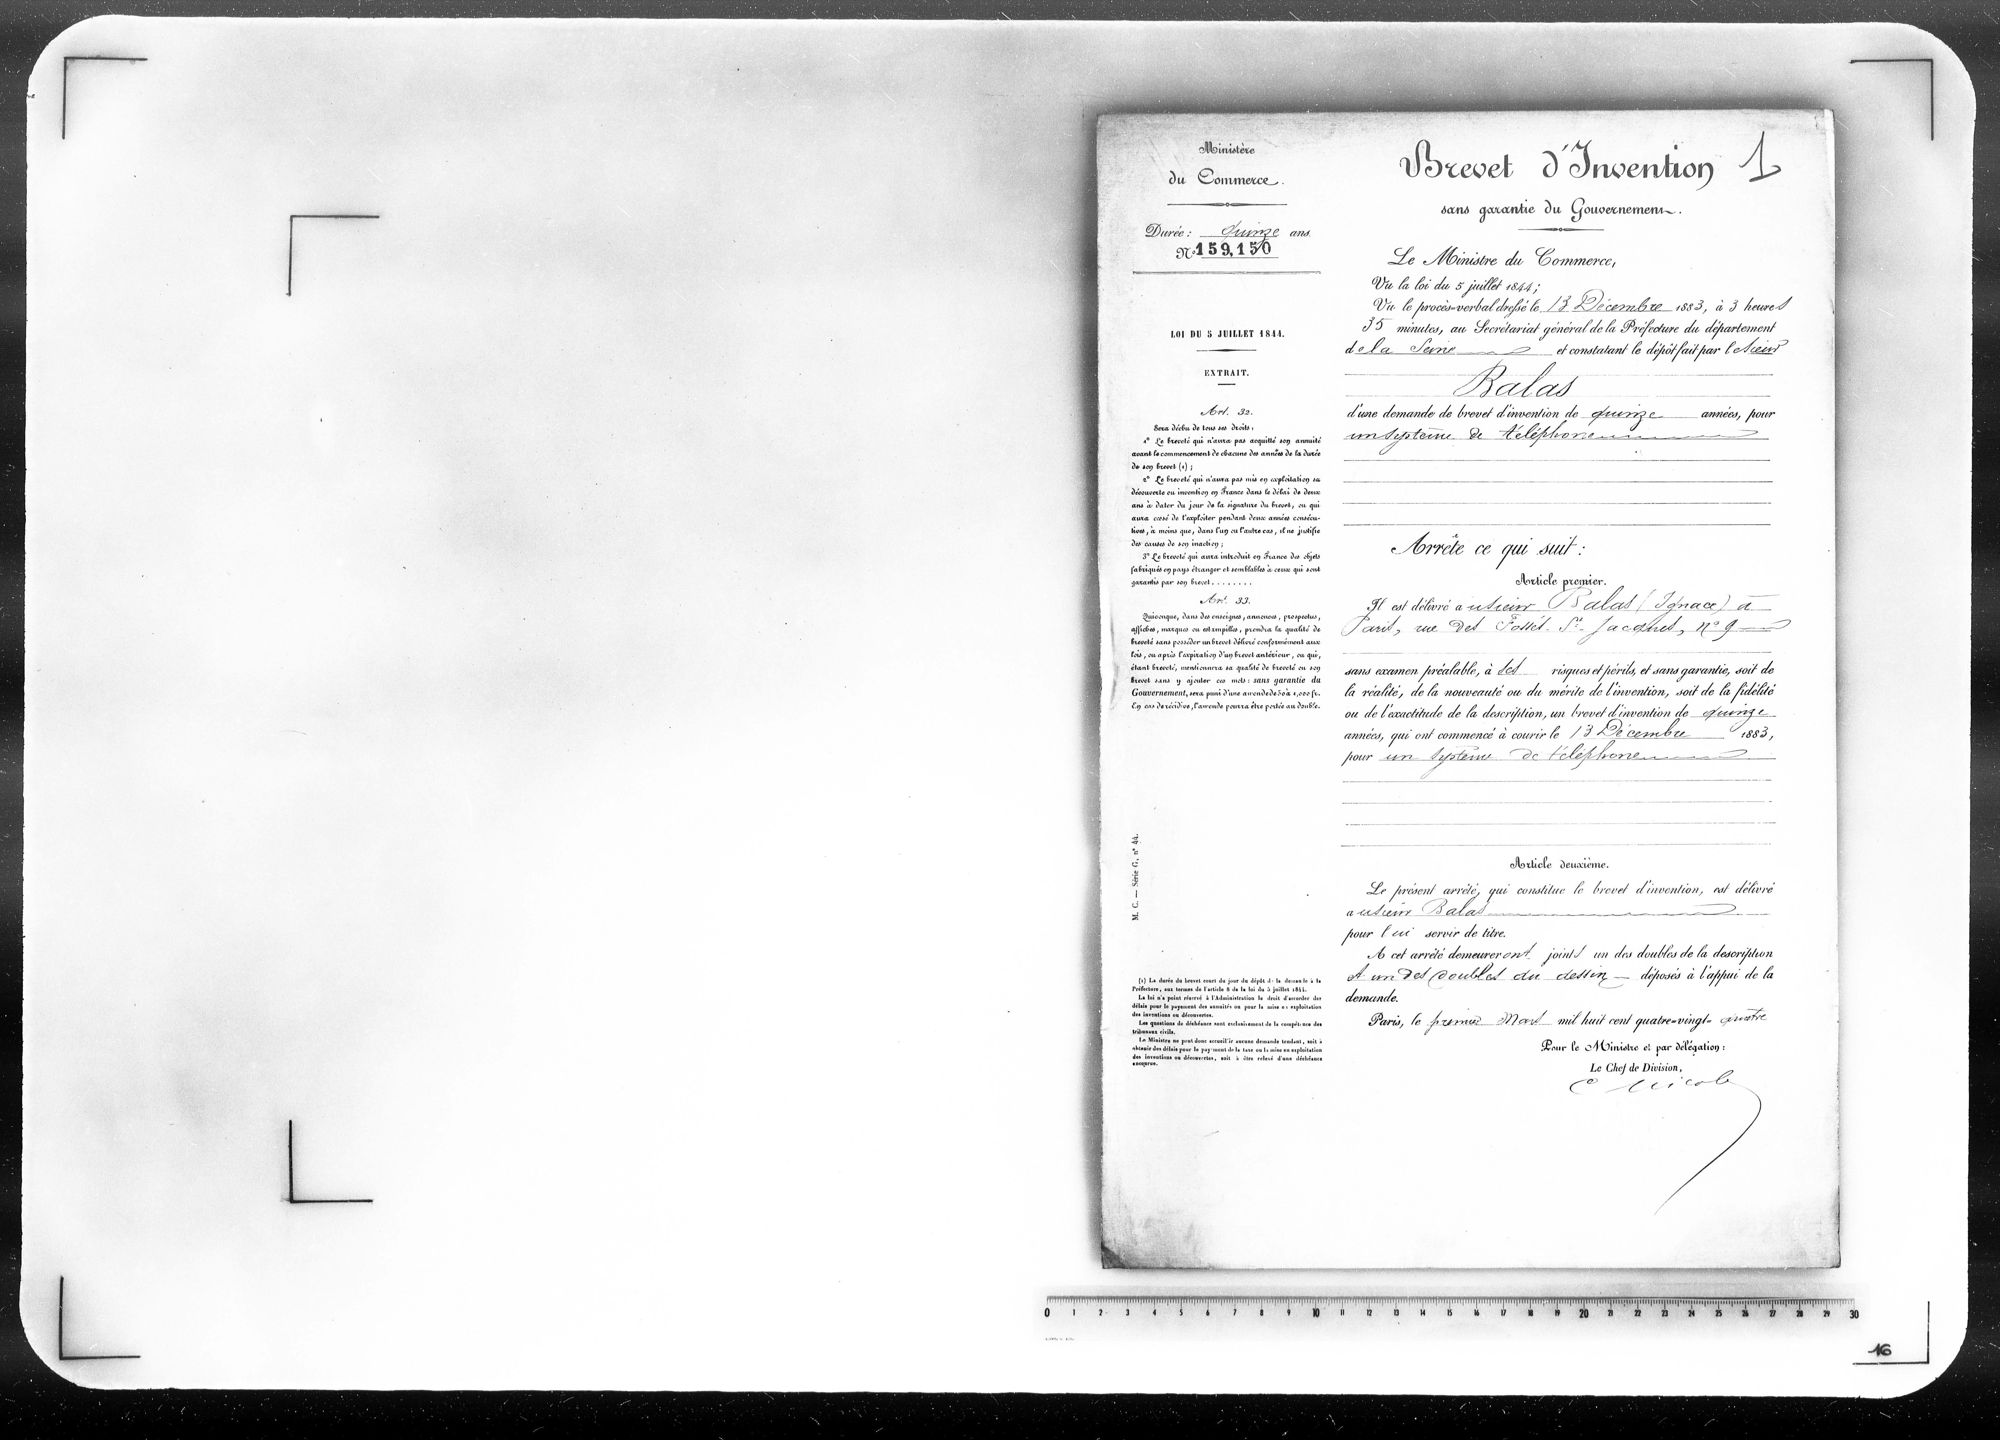 Ministère
du Commerce.
Durée : quinze ans
N° 159,150
LOI DU 5 JUILLET 1844.
EXTRAIT.
Art. 32.
Sera déchu de tous ses droits :
1° Le breveté qui n'aura pas acquitté son annuité
avant le commencement de chacune des années de la durée
de son brevet (1) ;
2° Le breveté qui n'aura pas mis en exploitation sa
découverte ou invention en France dans le délai de deux
ans à dater du jour de la signature du brevet, ou qui
aura cessé de l'exploiter pendant deux années consécu-
tives, à moins que, dans l'un ou l'autre cas, il ne justifie
des causes de son inaction ;
3° Le breveté qui aura introduit en France des objets
fabriqués en pays étranger et semblables à ceux qui sont
garantis par son brevet........
Art. 33.
Quiconque, dans des enseignes, annonces, prospectus,
affiches, marques ou estampilles, prendra la qualité de
breveté sans posséder un brevet délivré conformément aux
lois, ou après l'expiration d'un brevet antérieur, ou qui,
étant breveté, mentionnera sa qualité de breveté ou son
brevet sans y ajouter ces mots : sans garantie du
Gouvernement, sera puni d'une amende de 50 à 1,000 fr.
En cas de récidive, l'amende pourra être portée au double.
M. C. — Série G, n° 44.
(1) La durée du brevet court du jour du dépôt de la demande à la
Préfecture, aux termes de l'article 8 de la loi du 5 juillet 1844.
La loi n'a point réservé à l'Administration le droit d'accorder des
délais pour le payement des annuités ou pour la mise en exploitation
des inventions ou découvertes.
Les questions de déchéance sont exclusivement de la compétence des
tribunaux civils.
Le Ministre ne peut donc accueillir aucune demande tendant, soit à
obtenir des délais pour le payement de la taxe ou la mise en exploitation
des inventions ou découvertes, soit à être relevé d'une déchéance
encourue.
Brevet d'Invention 1
sans garantie du Gouvernement.
Le Ministre du Commerce,
Vu la loi du 5 juillet 1844 ;
Vu le procès-verbal dressé le 13 Décembre 1883, à 3 heures
35 minutes, au Secrétariat général de la Préfecture du département
de la Seine et constatant le dépôt fait par le sieur
Balas
d'une demande de brevet d'invention de quinze années, pour
un système de téléphone
Arrête ce qui suit :
Article premier.
Il est délivré au sieur Balas (Ignace) à
Paris, rue des Fossés St Jacques, n° 9
sans examen préalable, à ses risques et périls, et sans garantie, soit de
la réalité, de la nouveauté ou du mérite de l'invention, soit de la fidélité
ou de l'exactitude de la description, un brevet d'invention de quinze
années, qui ont commencé à courir le 13 Décembre 1883,
pour un système de téléphone
Article deuxième.
Le présent arrêté, qui constitue le brevet d'invention, est délivré
au sieur Balas
pour lui servir de titre.
A cet arrêté demeureront joints un des doubles de la description
et un des doubles du dessin déposés à l'appui de la
demande.
Paris, le premier Mars mil huit cent quatre-vingt-quatre
Pour le Ministre et par délégation :
Le Chef de Division,
0 1 2 3 4 5 6 7 8 9 10 11 12 13 14 15 16 17 18 19 20 21 22 23 24 25 26 27 28 29 30
16